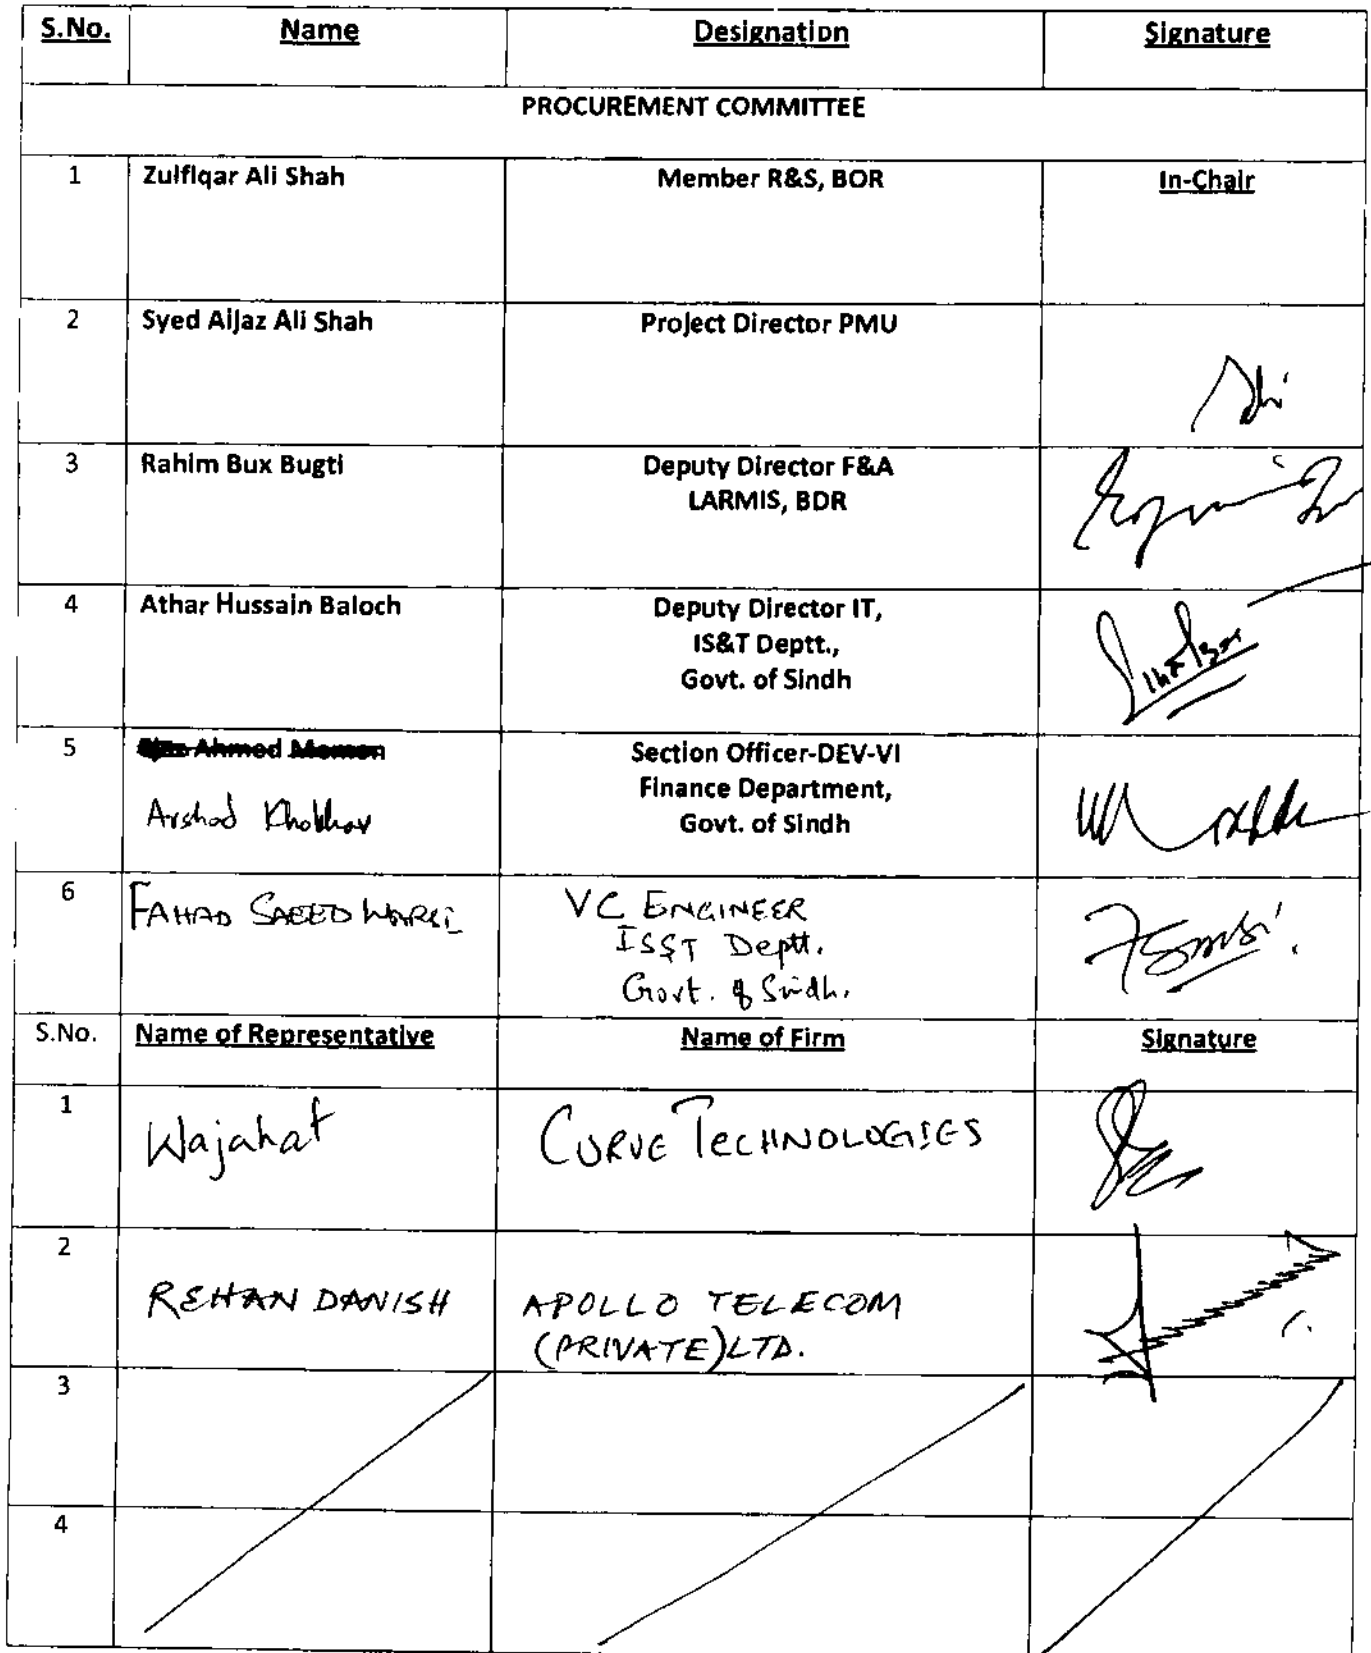 S.No. Name Designation Signature
PROCUREMENT COMMITTEE
1 Zulfiqar Ali Shah Member R&S, BOR In-Chair
2 Syed Aijaz Ali Shah Project Director PMU
3 Rahim Bux Bugti Deputy Director F&A
LARMIS, BDR
4 Athar Hussain Baloch Deputy Director IT,
IS&T Deptt.,
Govt. of Sindh
5 Ahmed Memon Section Officer-DEV-VI
Finance Department,
Arshad Khokhar Govt. of Sindh
6 FAHAD SAEED WARSI VC ENGINEER
IS&T Deptt.
Govt. of Sindh.
S.No. Name of Representative Name of Firm Signature
1 Wajahat CURVE TECHNOLOGIES
2 REHAN DANISH APOLLO TELECOM
(PRIVATE) LTD.
3
4